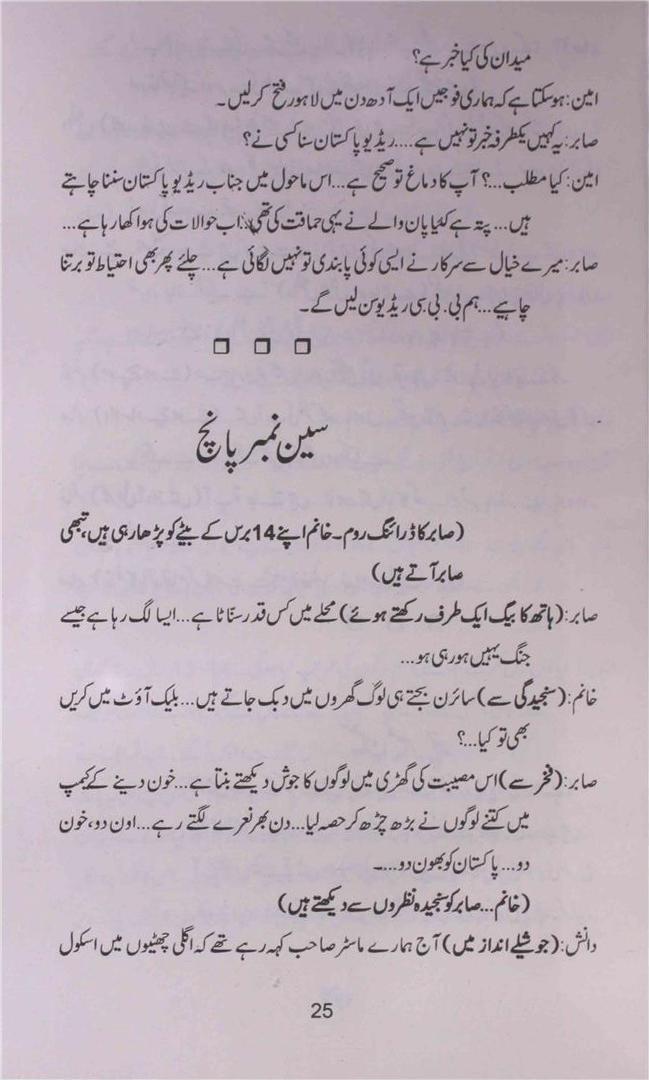 میدان کی کیا خبر ہے؟
امین: ہو سکتا ہے کہ ہماری فوجیں ایک آدھ دن میں لاہور فتح کر لیں۔
صابر: یہ کہیں یکطرفہ خبر تو نہیں ہے.... ریڈیو پاکستان سنا کسی نے؟
امین: کیا مطلب...؟ آپ کا دماغ تو صحیح ہے... اس ماحول میں جناب ریڈیو پاکستان سننا چاہتے
ہیں... پتہ ہے کلیا پان والے نے یہی حماقت کی تھی، اب حوالات کی ہوا کھا رہا ہے...
صابر: میرے خیال سے سرکار نے ایسی کوئی پابندی تو نہیں لگائی ہے... چلئے پھر بھی احتیاط تو برتنا
چاہیے... ہم بی. بی سی ریڈیو سن لیں گے۔
□ □ □
سین نمبر پانچ
(صابر کا ڈرائنگ روم۔ خانم اپنے 14 برس کے بیٹے کو پڑھا رہی ہیں، تبھی
صابر آتے ہیں)
صابر: (ہاتھ کا بیگ ایک طرف رکھتے ہوئے) محلے میں کس قدر سنّاٹا ہے... ایسا لگ رہا ہے جیسے
جنگ یہیں ہو رہی ہو...
خانم: (سنجیدگی سے) سائرن بجتے ہی لوگ گھروں میں دبک جاتے ہیں... بلیک آؤٹ میں کریں
بھی تو کیا...؟
صابر: (فخر سے) اس مصیبت کی گھڑی میں لوگوں کا جوش دیکھتے بنتا ہے... خون دینے کے کیمپ
میں کتنے لوگوں نے بڑھ چڑھ کر حصہ لیا... دن بھر نعرے لگتے رہے... اون دو، خون
دو... پاکستان کو بھون دو....
(خانم... صابر کو سنجیدہ نظروں سے دیکھتے ہیں)
دانش: (جوشیلے انداز میں) آج ہمارے ماسٹر صاحب کہہ رہے تھے کہ اگلی چھٹیوں میں اسکول
25